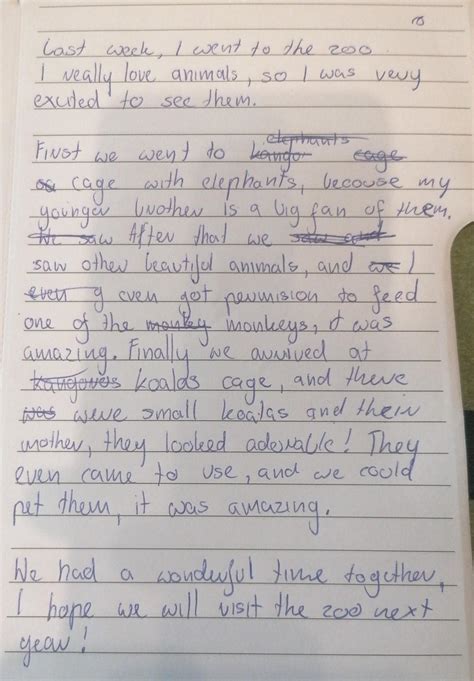 Last week, I went to the zoo.
I really love animals, so I was very
excited to see them.
elephants
First we went to kango cage
cage with elephants, becouse my
younger brother is a big fan of them.
We saw After that we
saw other beautiful animals, and we I
even even got permision to feed
one of the monkey monkeys, it was
amazing. Finally we arrived at
kangoros koalas cage, and there
was were small koalas and their
mother, they looked adorable! They
even came to use, and we could
pet them, it was amazing.
We had a wonderful time together,
I hope we will visit the zoo next
year!